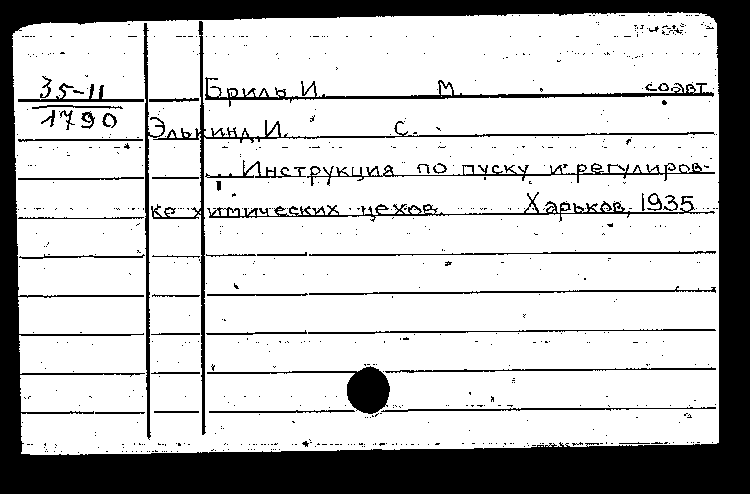 35-11 Бриль, И. М. соавт.
1790 Элькинд, И. С.
... Инструкция по пуску и регулиров-
ке химических цехов. Харьков, 1935